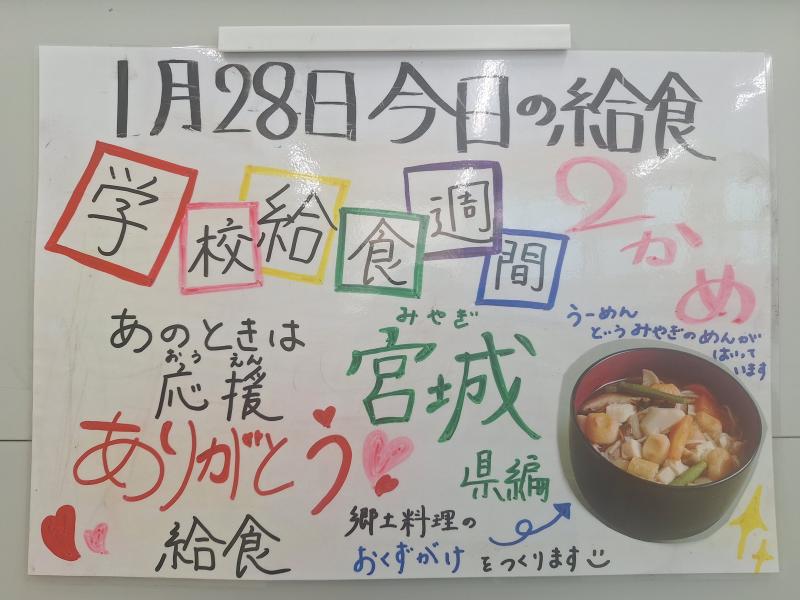 1月28日今日の給食
学校給食週間
2かめ
あのときは
おうえん
応援
ありがとう
給食
みやぎ
宮城
県編
うーめん
どいうみやぎのめんが
はいって
います
郷土料理の
おくずがけ
をつくります